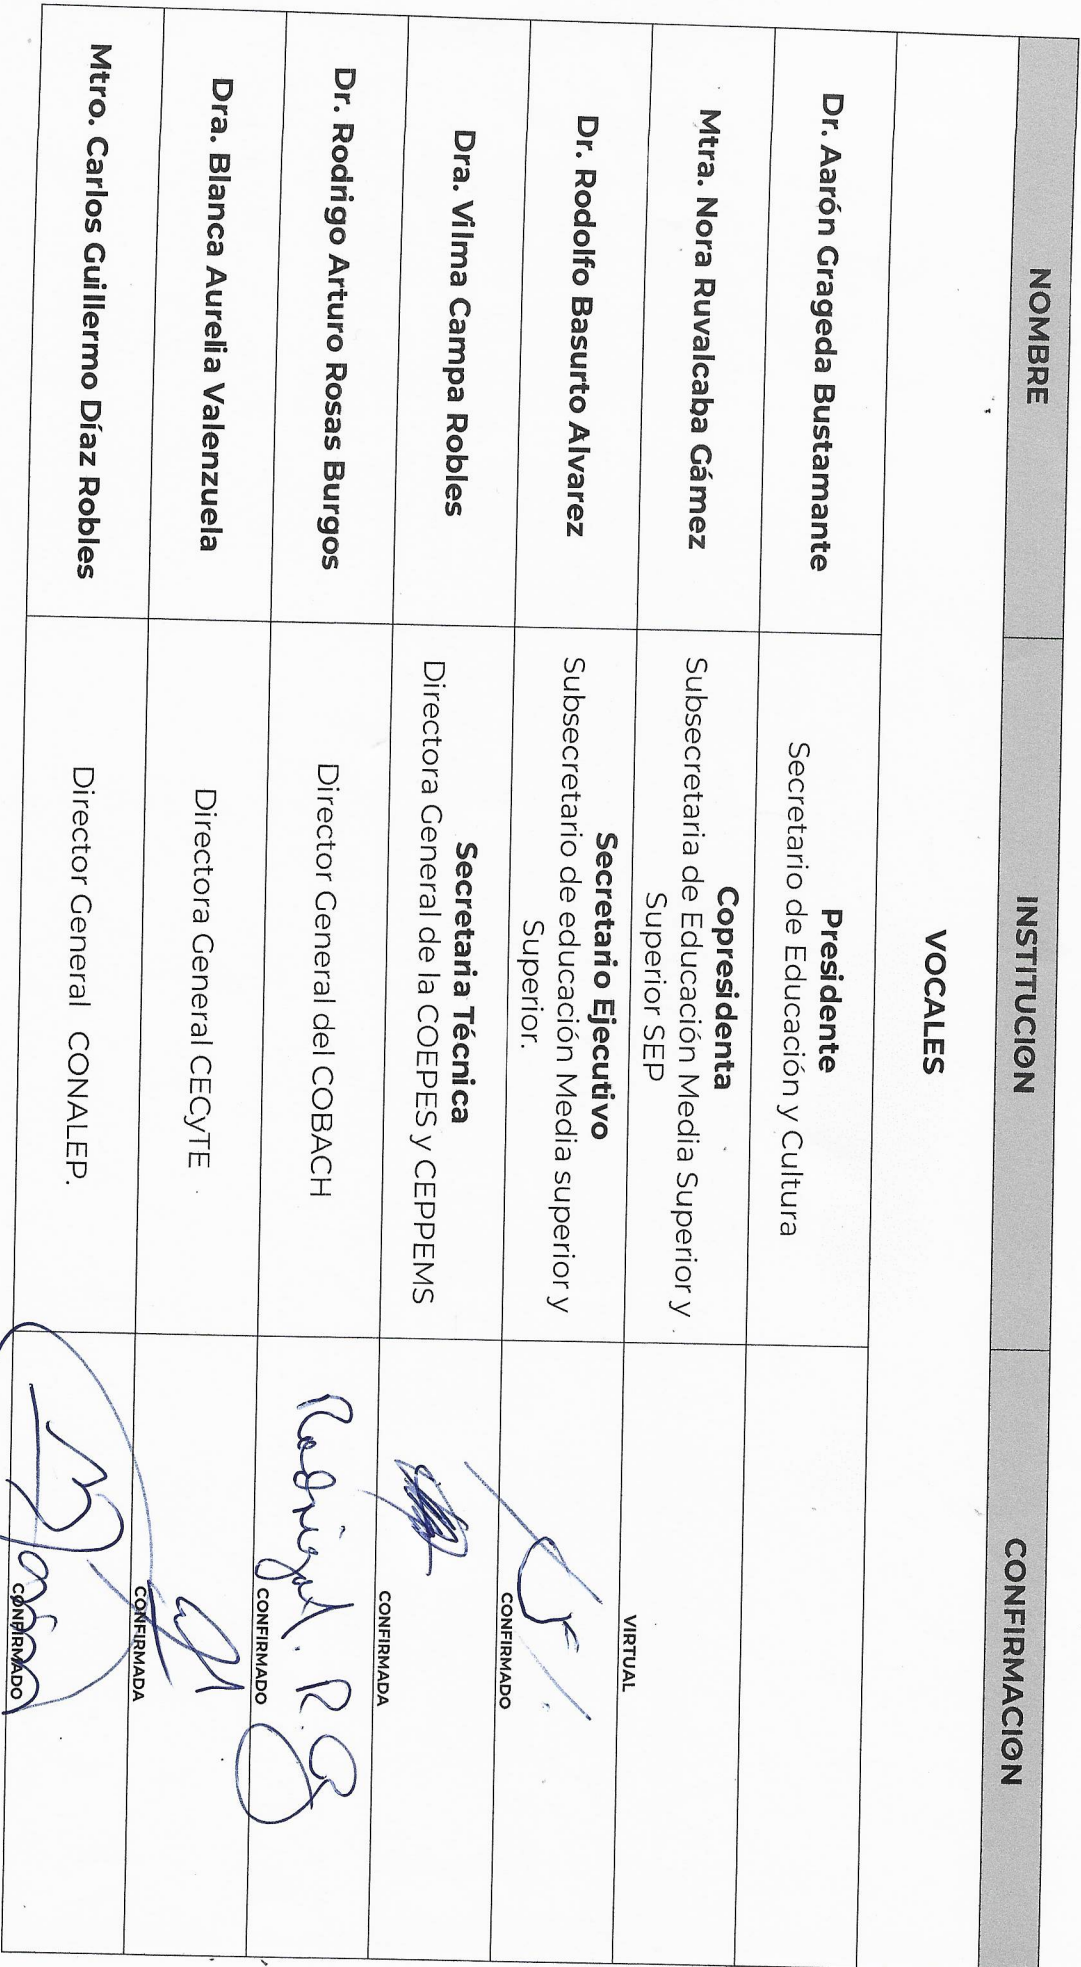 NOMBRE INSTITUCION CONFIRMACION
VOCALES
Dr. Aarón Grageda Bustamante
Presidente
Secretario de Educación y Cultura
Mtra. Nora Ruvalcaba Gámez
Copresidenta
Subsecretaria de Educación Media Superior y
Superior SEP
VIRTUAL
Dr. Rodolfo Basurto Alvarez
Secretario Ejecutivo
Subsecretario de educación Media superior y
Superior.
CONFIRMADO
Dra. Vilma Campa Robles
Secretaria Técnica
Directora General de la COEPES y CEPPEMS
CONFIRMADA
Dr. Rodrigo Arturo Rosas Burgos
Director General del COBACH
CONFIRMADO
Dra. Blanca Aurelia Valenzuela
Directora General CECyTE
CONFIRMADA
Mtro. Carlos Guillermo Díaz Robles
Director General CONALEP.
CONFIRMADO